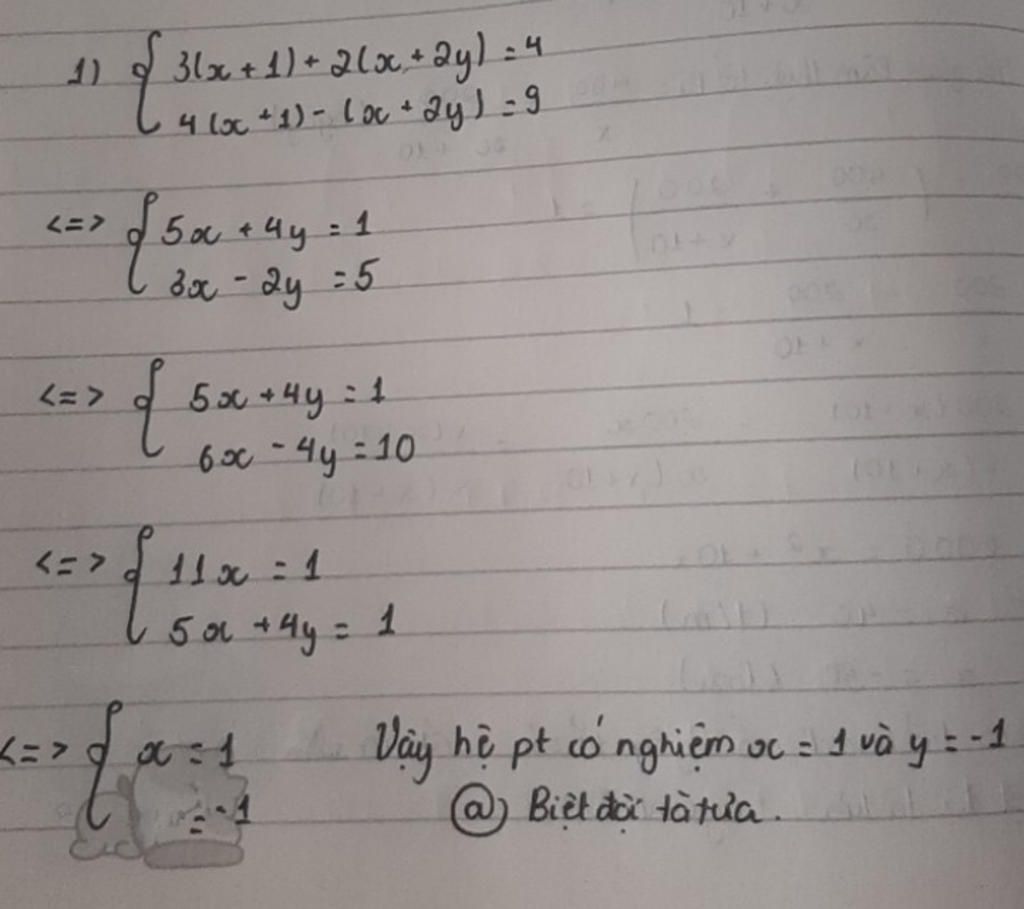 1) { 3(x + 1) + 2(x + 2y) = 4
4(x + 1) - (x + 2y) = 9
<=> { 5x + 4y = 1
3x - 2y = 5
<=> { 5x + 4y = 1
6x - 4y = 10
<=> { 11x = 1
5x + 4y = 1
<=> { x = 1 Vậy hệ pt có nghiệm x = 1 và y = -1
= -1 @ Biệt đội tà tưa.